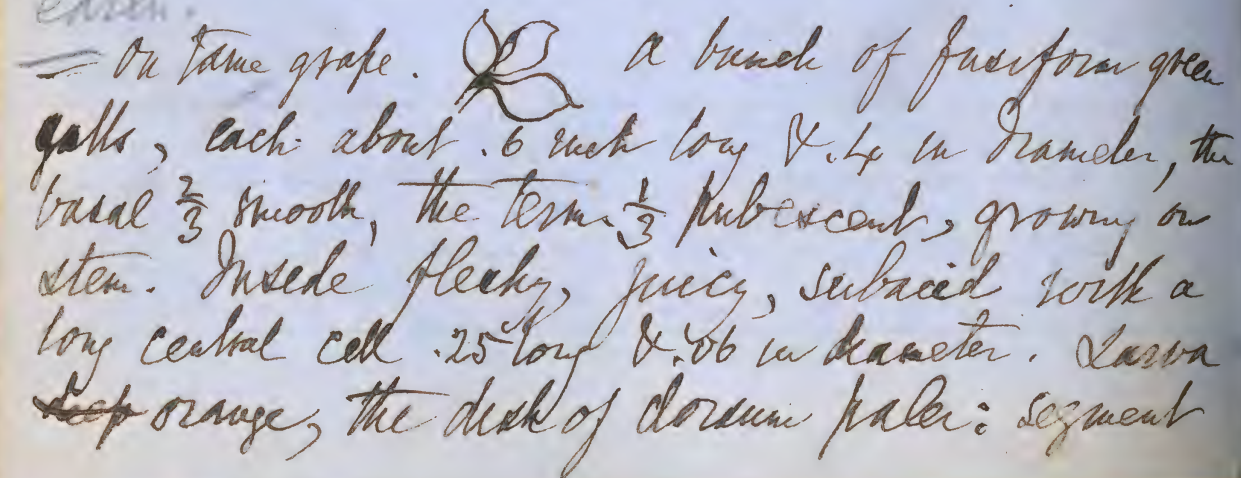 earth.
— on tame grape. a bunch of fusiform green
galls, each about .6 inch long & .4 in diameter, the
basal 2/3 smooth, the term. 1/3 pubescent, growing on
stem. Inside fleshy, juicy, subacid with a
long central cell .25 long & .06 in diameter. Larva
deep orange, the disk of dorsum paler: segment